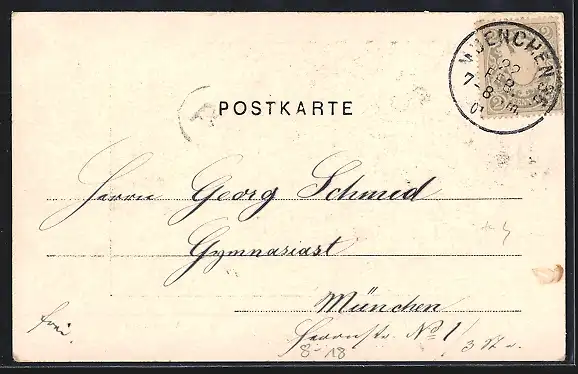 MUENCHEN
22
FEB.
7-8
01
2
POSTKARTE
Herrn Georg Schmid
Gymnasiast
München
Herrnstr. No 1/
frei.
8-18